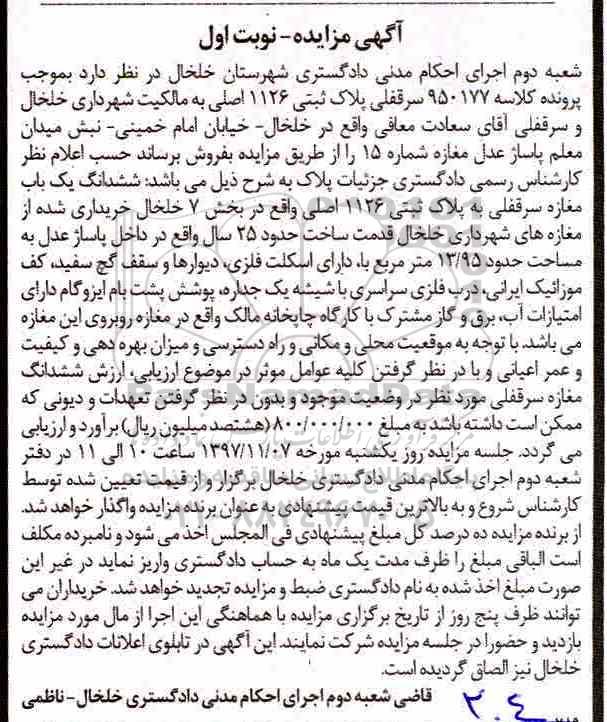 آگهی مزایده - نوبت اول
شعبه دوم اجرای احکام مدنی دادگستری شهرستان خلخال در نظر دارد بموجب
پرونده کلاسه ۹۵۰۱۷۷ سرقفلی پلاک ثبتی ۱۱۲۶ اصلی به مالکیت شهرداری خلخال
و سرقفلی آقای سعادت معافی واقع در خلخال- خیابان امام خمینی- نبش میدان
معلم پاساژ عدل مغازه شماره ۱۵ را از طریق مزایده بفروش برساند حسب اعلام نظر
کارشناس رسمی دادگستری جزئیات پلاک به شرح ذیل می باشد: ششدانگ یک باب
مغازه سرقفلی به پلاک ثبتی ۱۱۲۶ اصلی واقع در بخش ۷ خلخال خریداری شده از
مغازه های شهرداری خلخال قدمت ساخت حدود ۲۵ سال واقع در داخل پاساژ عدل به
مساحت حدود ۱۳/۹۵ متر مربع با، دارای اسکلت فلزی، دیوارها و سقف گچ سفید، کف
موزائیک ایرانی، درب فلزی سراسری با شیشه یک جداره، پوشش پشت بام ایزوگام دارای
امتیازات آب، برق و گاز مشترک با کارگاه چاپخانه مالک واقع در مغازه روبروی این مغازه
می باشد. با توجه به موقعیت محلی و مکانی و راه دسترسی و میزان بهره دهی و کیفیت
و عمر اعیانی و با در نظر گرفتن کلیه عوامل موثر در موضوع ارزیابی، ارزش ششدانگ
مغازه سرقفلی مورد نظر در وضعیت موجود و بدون در نظر گرفتن تعهدات و دیونی که
ممکن است داشته باشد به مبلغ ۸۰۰/۰۰۰/۰۰۰ (هشتصد میلیون ریال) برآورد و ارزیابی
می گردد. جلسه مزایده روز یکشنبه مورخه ۱۳۹۷/۱۱/۰۷ ساعت ۱۰ الی ۱۱ در دفتر
شعبه دوم اجرای احکام مدنی دادگستری خلخال برگزار و از قیمت تعیین شده توسط
کارشناس شروع و به بالاترین قیمت پیشنهادی به عنوان برنده مزایده واگذار خواهد شد.
از برنده مزایده ده درصد کل مبلغ پیشنهادی فی المجلس اخذ می شود و نامبرده مکلف
است الباقی مبلغ را ظرف مدت یک ماه به حساب دادگستری واریز نماید در غیر این
صورت مبلغ اخذ شده به نام دادگستری ضبط و مزایده تجدید خواهد شد. خریداران می
توانند ظرف پنج روز از تاریخ برگزاری مزایده با هماهنگی این اجرا از مال مورد مزایده
بازدید و حضورا در جلسه مزایده شرکت نمایند. این آگهی در تابلوی اعلانات دادگستری
خلخال نیز الصاق گردیده است.
قاضی شعبه دوم اجرای احکام مدنی دادگستری خلخال- ناظمی
۳۰۴